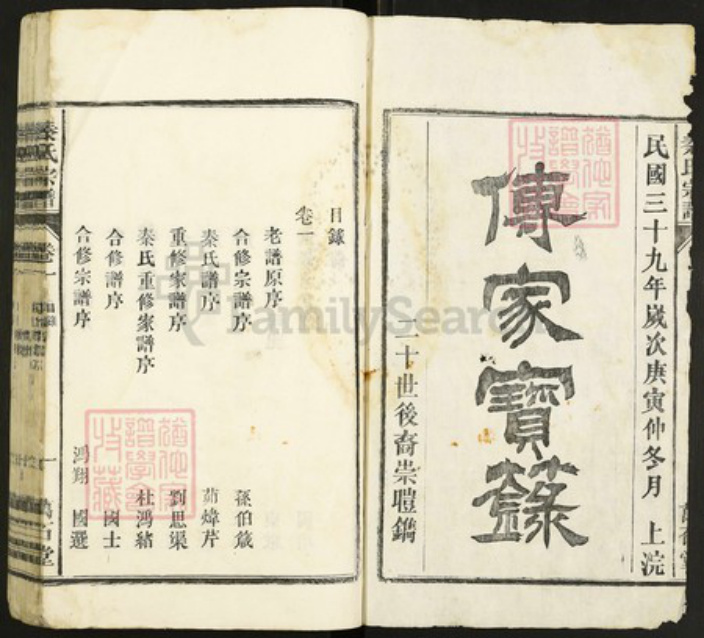 民國三十九年歲次庚寅仲冬月 上浣
傳家寶籙
二十世後裔崇瞪鐫
目錄
卷一
老譜原序
合修宗譜序 孫伯箴
秦氏譜序 茆煒芹
重修家譜序 劉思渠
秦氏重修家譜序 杜鴻緒
合修譜序 國士
合修宗譜序 鴻翔 國選
秦氏宗譜
卷一
目錄
一
萬石堂
猶他家譜學會 收藏
FamilySearch